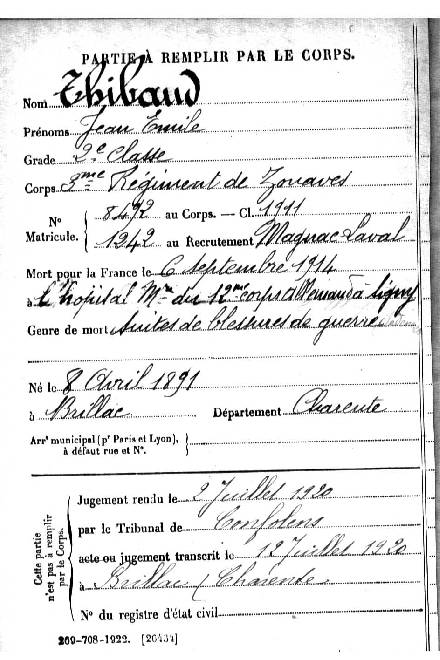 PARTIE À REMPLIR PAR LE CORPS.
Nom Thibaud
Prénoms Jean Emile
Grade 2e classe
Corps 3me Régiment de Zouaves
No Matricule. { 8492 au Corps. — Cl. 1911
1242 au Recrutement Magnac Laval
Mort pour la France le 6 Septembre 1914
à l'hôpital Mre du 12me corps Allemand à Ligny
Genre de mort suites de blessures de guerre
Né le 8 Avril 1891
à Brillac Département Charente
Arrt municipal (pr Paris et Lyon),
à défaut rue et No.
Cette partie
n'est pas à remplir
par le Corps.
Jugement rendu le 2 Juillet 1920
par le Tribunal de Confolens
acte ou jugement transcrit le 12 Juillet 1920
à Brillac (Charente
No du registre d'état civil
269-708-1922. [26434]